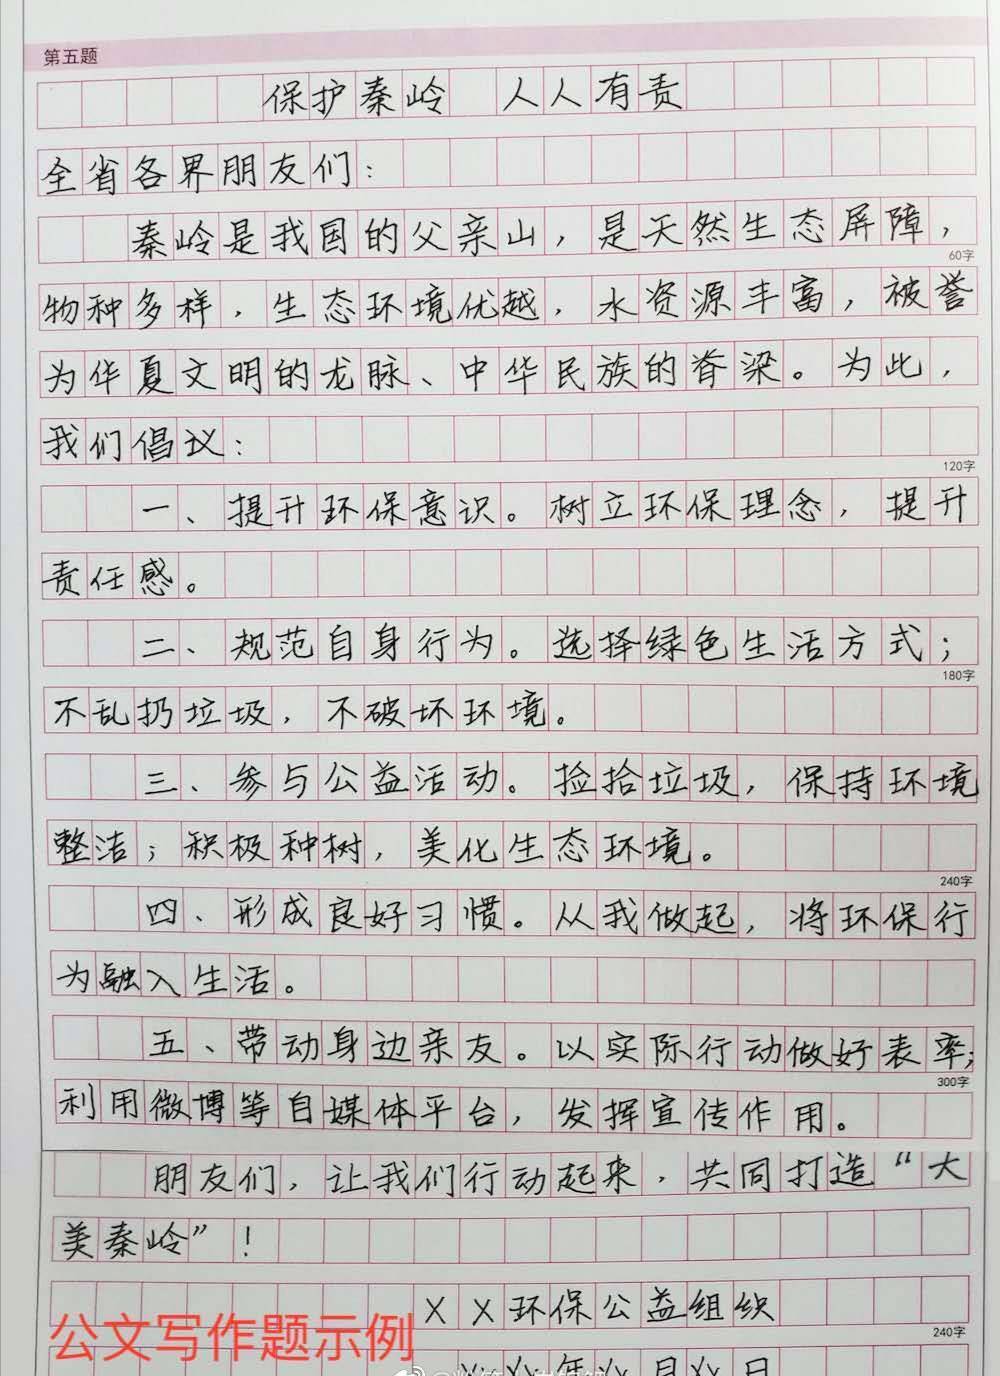 第五题
保护秦岭 人人有责
全省各界朋友们：
秦岭是我国的父亲山，是天然生态屏障，
60字
物种多样，生态环境优越，水资源丰富，被誉
为华夏文明的龙脉、中华民族的脊梁。为此，
我们倡议：
120字
一、提升环保意识。树立环保理念，提升
责任感。
二、规范自身行为。选择绿色生活方式；
180字
不乱扔垃圾，不破坏环境。
三、参与公益活动。捡拾垃圾，保持环境
整洁；积极种树，美化生态环境。
240字
四、形成良好习惯。从我做起，将环保行
为融入生活。
五、带动身边亲友。以实际行动做好表率；
300字
利用微博等自媒体平台，发挥宣传作用。
朋友们，让我们行动起来，共同打造“大
美秦岭”！
XX环保公益组织
公文写作题示例
240字
XX年XX月XX日